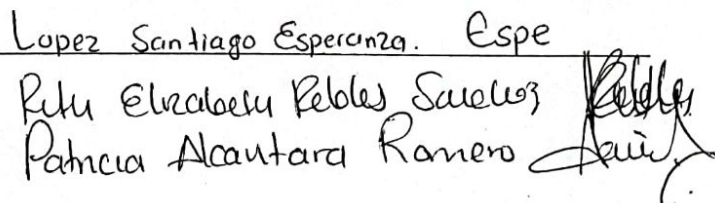 Lopez Santiago Esperanza. Espe
Elizabeth Robles
Patricia Alcantara Romero